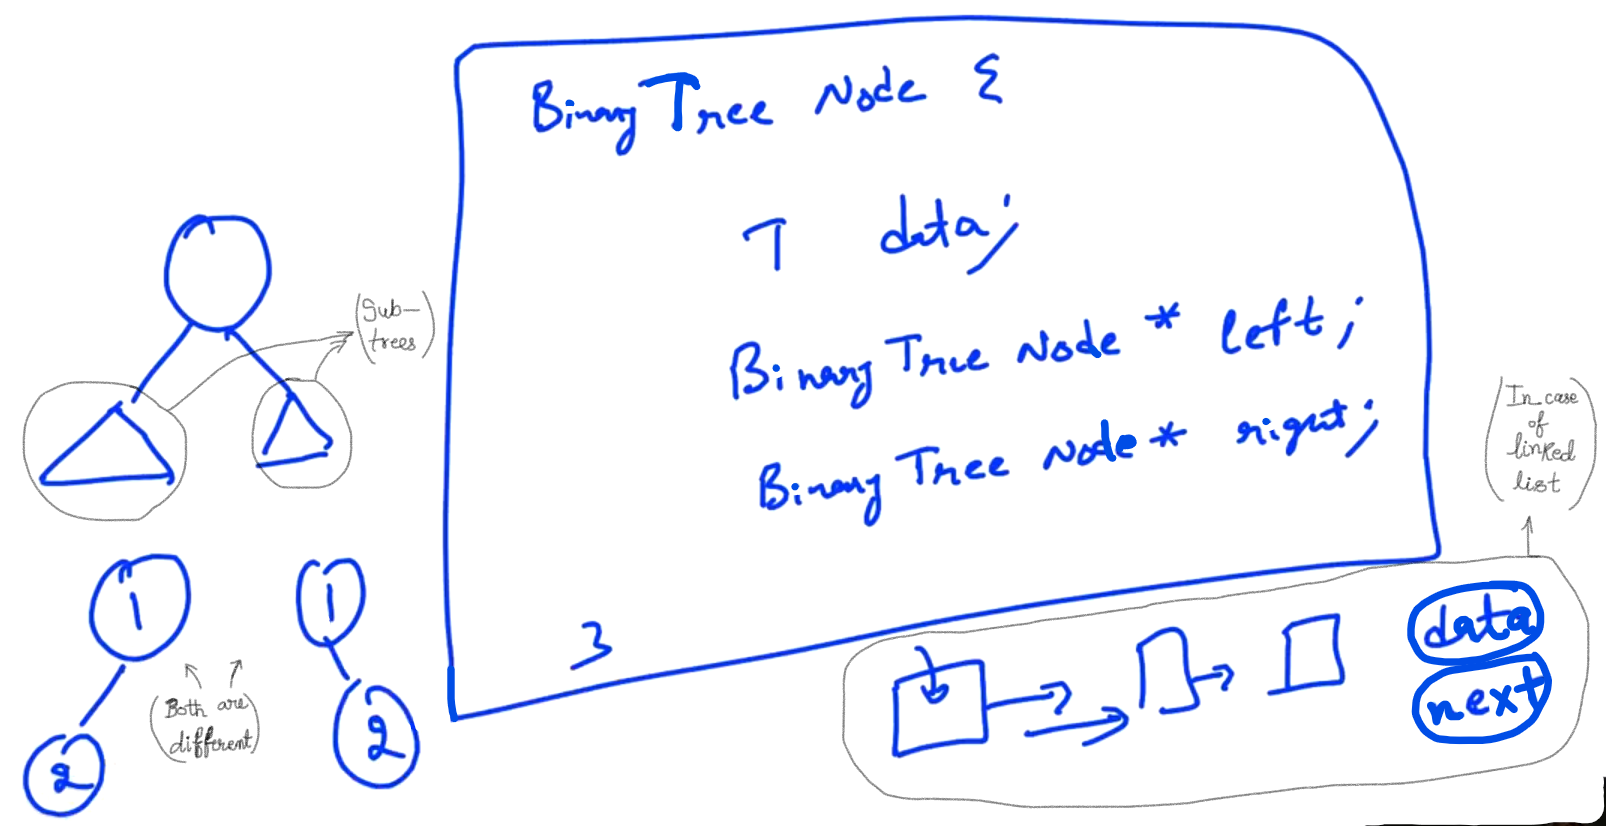 BinaryTree Node {
T data;
BinaryTree Node * left;
BinaryTree Node * right;
}
(Sub-
trees)
1
2
1
2
(Both are
different)
(In case
of
linked
list)
data
next